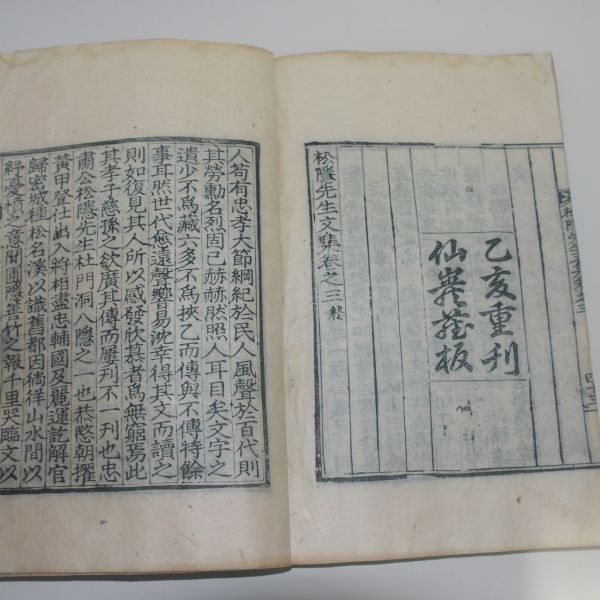 乙亥重刊
仙巖藏板
松隱先生文集卷之三終
人苟有忠孝大節綱紀於民人風聲於百代則
其勞勳名烈固已赫赫然照人耳目矣文字之
遺少不爲藏六多不爲挾乙而傳與不傳特餘
事耳然世代愈遠聲響易沈幸得其文而讀之
則如復見其人所以感發欣慕者爲無窮焉此
其孝子慈孫之欲廣其傳而屢刊不一刊也忠
肅公松隱先生杜門洞八隱之一也恭愍朝擢
黃甲登仕出入將相盡忠輔國及麗運訖解官
歸密城種松名漢以識舊都因徜徉山水間以
紓憂憤之意聞圃隱善竹之報千里哭臨文以